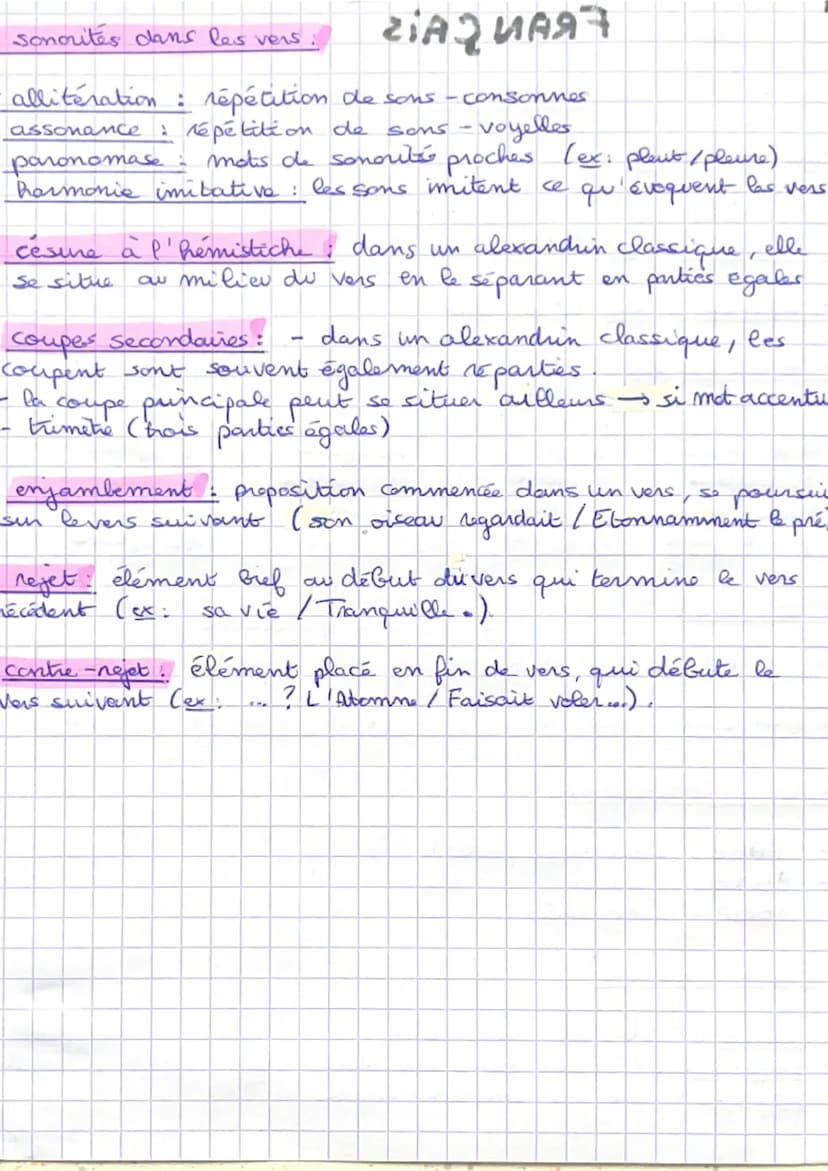 sonorités dans les vers :
FRANÇAIS
alliteration : répétition de sons - consonnes
assonance : répétition de sons - voyelles
paronomase : mots de sonorités proches (ex: pleut / pleure)
harmonie imitative : les sons imitent ce qu'évoquent les vers
césure à l'hémistiche : dans un alexandrin classique, elle
se situe au milieu du vers en le séparant en parties égales
coupes secondaires : - dans un alexandrin classique, les
coupent sont souvent également réparties.
- la coupe principale peut se situer ailleurs → si mot accentu
- trimètre (trois parties égales)
enjambement : proposition commencée dans un vers, se poursui
sur le vers suivant (son oiseau regardait / Etonnamment le pré
rejet : élément bref au début du vers qui termine le vers
récédent (ex : sa vie / Tranquille .).
contre-rejet : élément placé en fin de vers, qui débute le
vers suivant (ex : ... ? L'Atomne / Faisait voler ...).